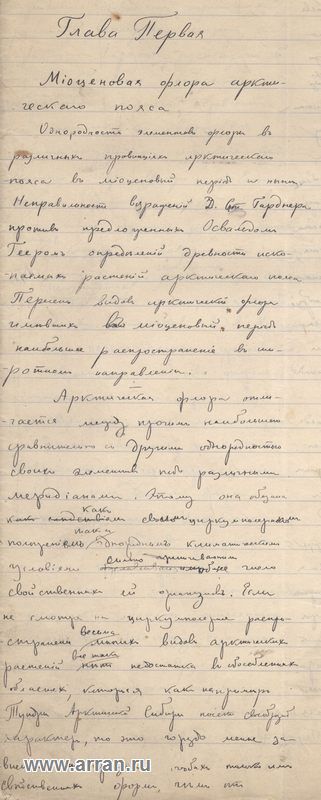 Глава Первая
Мiоценовая флора аркти-
ческаго пояса
Однородность элементовъ флоры въ
различныхъ провинцiяхъ арктическаго
пояса въ мiоценовый перiодъ и нынѣ.
Неправильность возраженiй Д. Ст. Гарднера
противъ предложенныхъ Освальдомъ
Гееромъ опредѣленiй древности иско-
паемыхъ растенiй арктическаго пояса
Перечень видовъ арктической флоры
имѣвшихъ въ мiоценовый перiодъ
наибольшее распространенiе въ ши-
ротномъ направленiи.
Арктическая флора отли-
чается между прочимъ наибольшею
сравнительно съ другими однородностью
своихъ элементовъ подъ различными
меридiанами. Этому она обязана
какъ своимъ циркумполярнымъ
положенiемъ, такъ однороднымъ климатическимъ
условiямъ сильно число
свойственныхъ ей организм. Если
не смотря на циркумполярное распро-
страненiе весьма многихъ видовъ арктическихъ
растенiй все таки нѣтъ недостатка въ обособленныхъ
областяхъ, которыя какъ напримѣръ
Тундры Арктической Сибири носятъ своеобразный
характеръ, то это гораздо менѣе за-
только имъ
свойственныхъ формъ, чѣмъ отъ
www.arran.ru